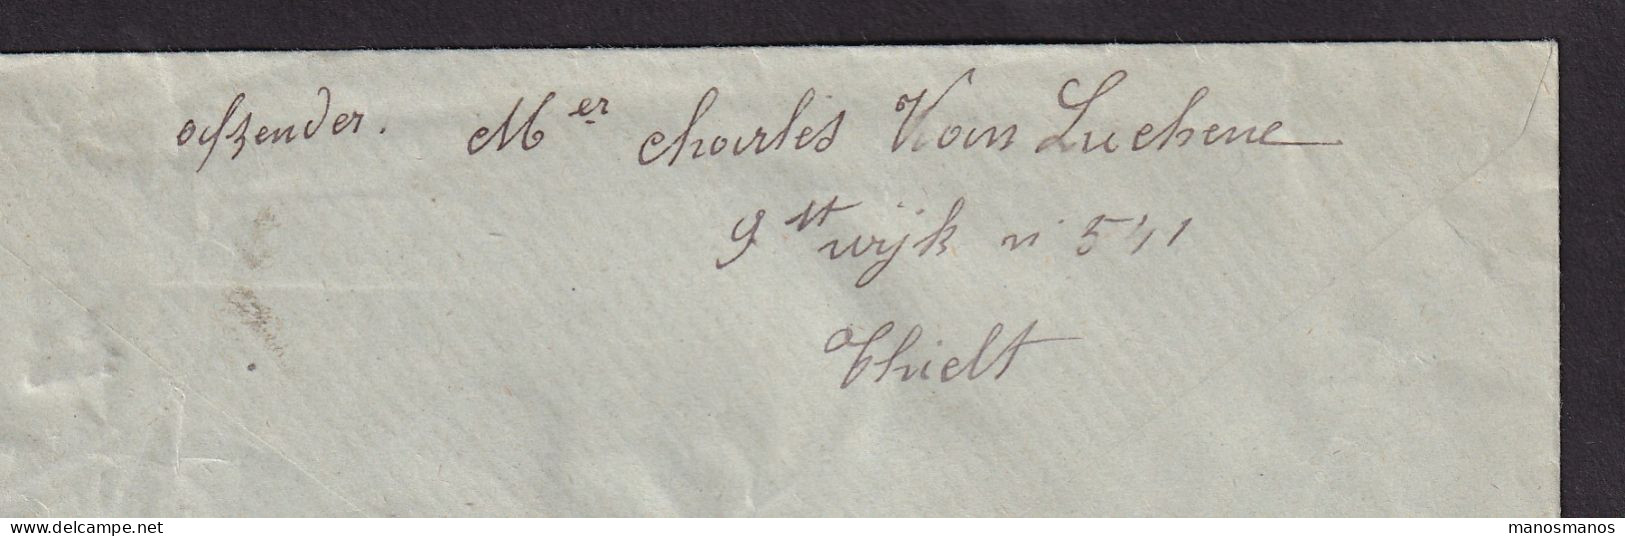 afzender. Mᵉʳ Charles Van Luchene
9 ˢᵗ wijk n° 541
Thielt
www.delcampe.net
manosmanos